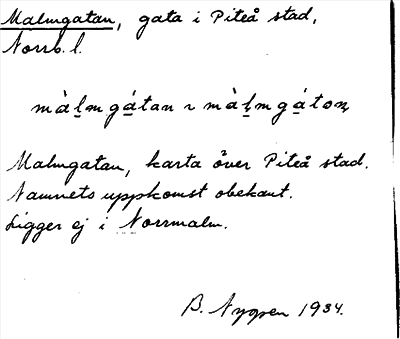 Malmgatan, gata i Piteå stad,
Norrb. l.
màl̠mga̱tan ~ màl̠mga̱toṇ
Malmgatan, karta över Piteå stad.
Namnets uppkomst obekant.
Ligger ej i Norrmalm.
B. Nygren 1934.